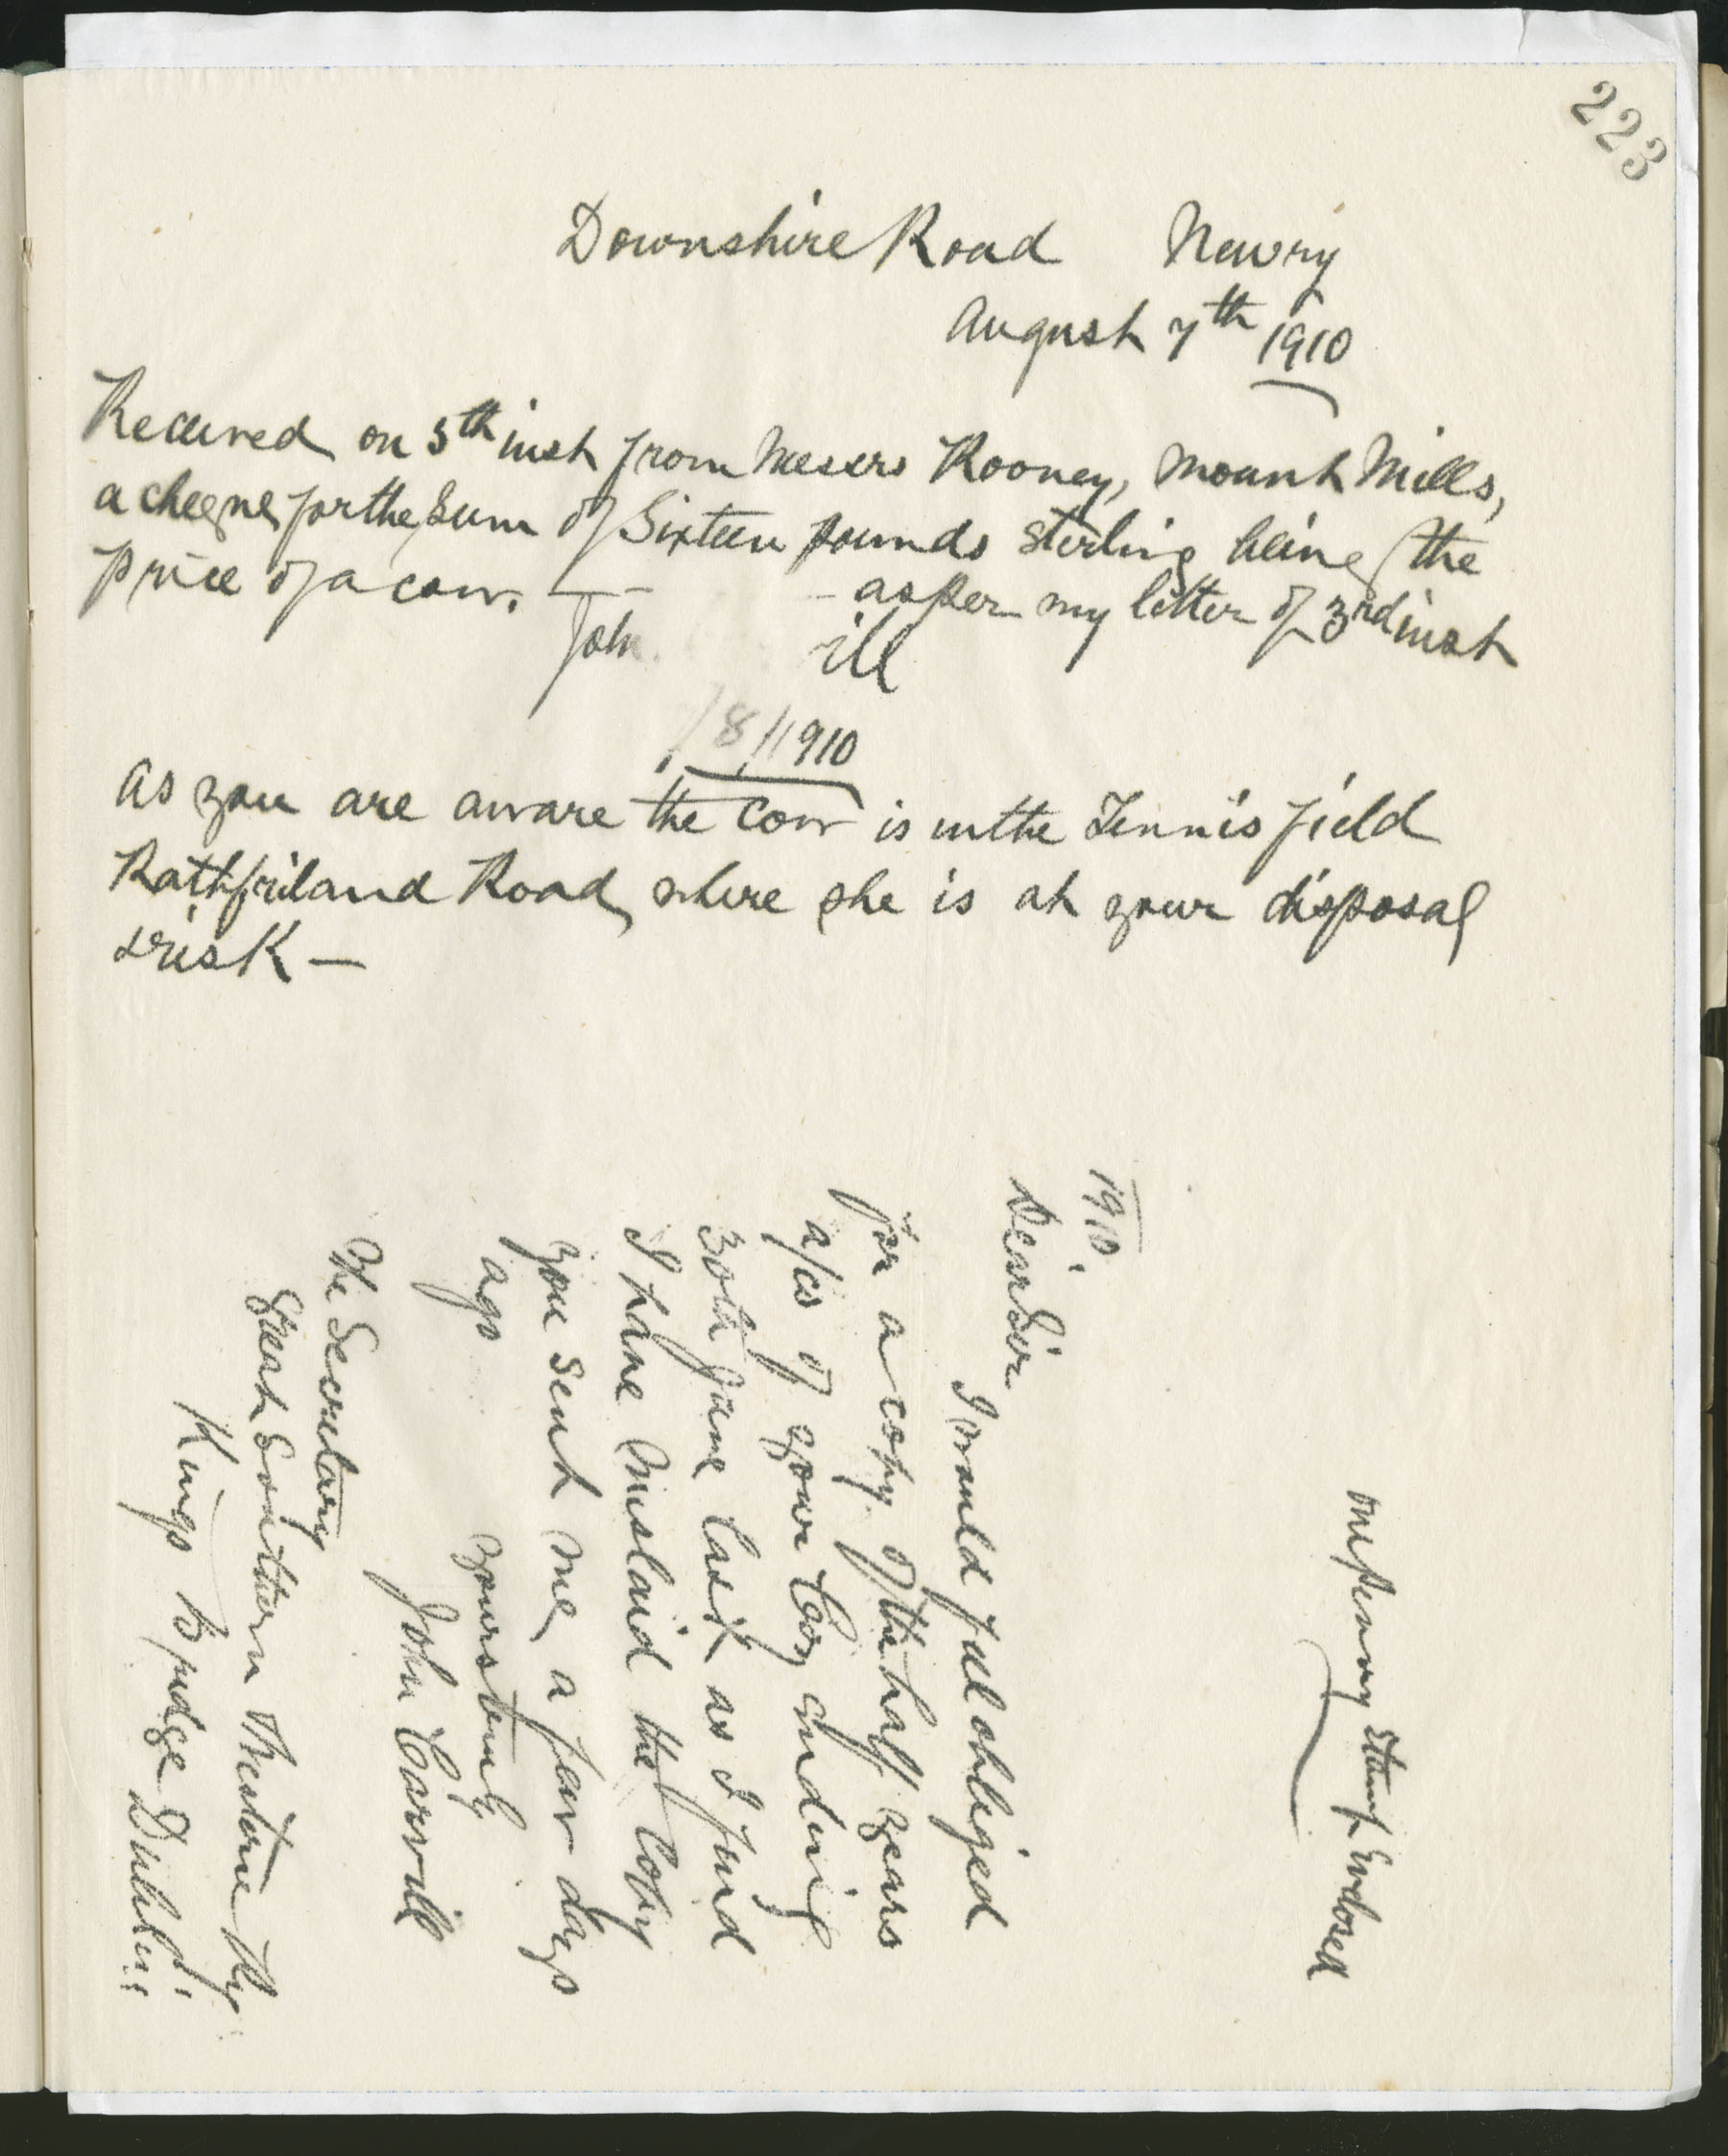 223
Downshire Road Newry
August 7th 1910
Received on 5th inst from Messrs Rooney, Mount Mills,
a cheque for the Sum of Sixteen pounds sterling being the
price of a cow. — — as per my letter of 3rd inst
John ill
/8/1910
As you are aware the cow is in the Tennis field
Rathfriland Road, where she is at your disposal
& risk —
one penny Stamp Enclosed
1910.
Dear Sir
I would feel obliged
for a copy of the half years
a/cs of your Coy ending
30th June last as I find
I have mislaid the Copy
you sent me, a few days
ago
Yours truly
John Carvill
The Secretary
Great Southern & Western Rly
Kings Bridge Dublin